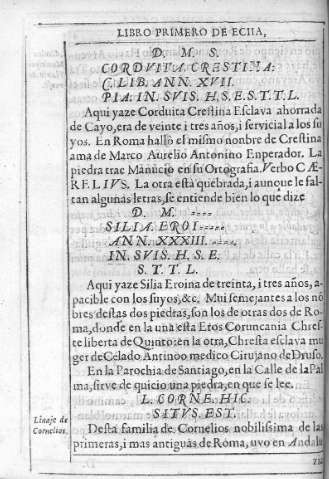 LIBRO PRIMERO DE ECIIA,
D. M. S.
CORDVITA. CRESTINA:
C. LIB. ANN. XVII
PIA. IN. SVIS. H. S. E. S. T. T. L.
Aqui yaze Corduita Crestina Esclava ahorrada
de Cayo, era de veinte i tres años, i servicial a los su
yos. En Roma hallò el mismo nonbre de Crestina
ama de Marco Aurelio Antonino Enperador. La
piedra trae Manucio en su Ortografia. Verbo CÆ-
RELIVS. La otra està quebrada, i aunque le fal-
tan algunas letras, se entiende bien lo que dize
D. M. ----
SILIA. EROI-----
ANN. XXXIII. ----.
IN. SVIS. H. S. E.
S. T. T. L.
Aqui yaze Silia Eroina de treinta, i tres años, a-
pacible con los suyos, &c. Mui semejantes a los nō
bres destas dos piedras, son los de otras dos de Ro-
ma, donde en la una està Etos Coruncania Chres-
te liberta de Quinto: en la otra, Chresta esclava mu
ger de Celado Antinoo medico Cirujano de Druso.
En la Parochia de Santiago, en la Calle de la Pal
ma, sirve de quicio una piedra, en que se lee.
L. CORNE. HIC.
SITVS. EST.
Linaje de
Cornelios.
Desta familia de Cornelios nobilissima de las
primeras, i mas antiguas de Roma, uvo en Andalu